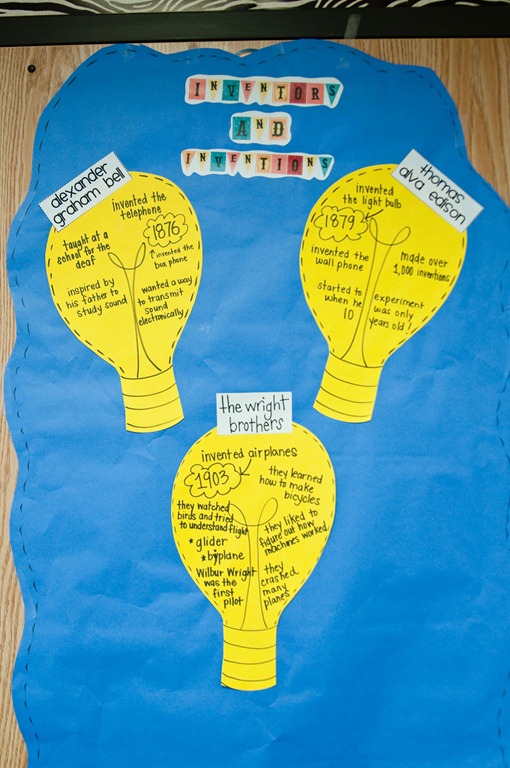 INVENTORS
AND
INVENTIONS
alexander
graham bell
invented the
telephone
1876
taught at a
school for the
deaf
invented the
box phone
inspired by
his father to
study sound
wanted a way
to transmit
sound
electronically
thomas
alva edison
invented
the light bulb
1879
invented the
wall phone
made over
1,000 inventions
started to
when he
10
experiment
was only
years old!
the wright
brothers
invented airplanes
1903
they learned
how to make
bicycles
they watched
birds and tried
to understand flight
* glider
* biplane
they liked to
figure out how
machines worked
Wilbur Wright
was the
first
pilot
they
crashed
many
planes